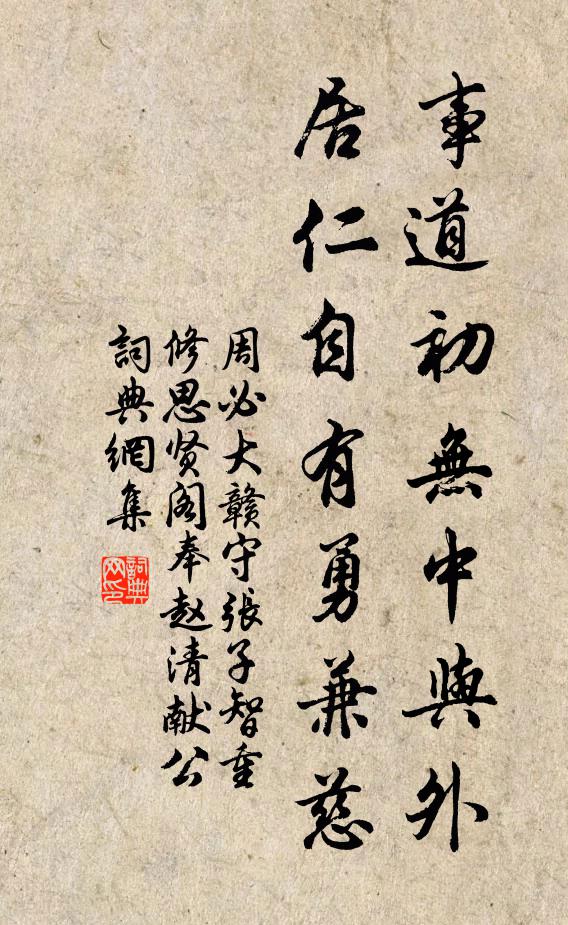 事道初無中與外
居仁自有勇兼慈
周必大贛守張子智重
修思贤阁奉赵清献公
詞典網集
詞典
网印